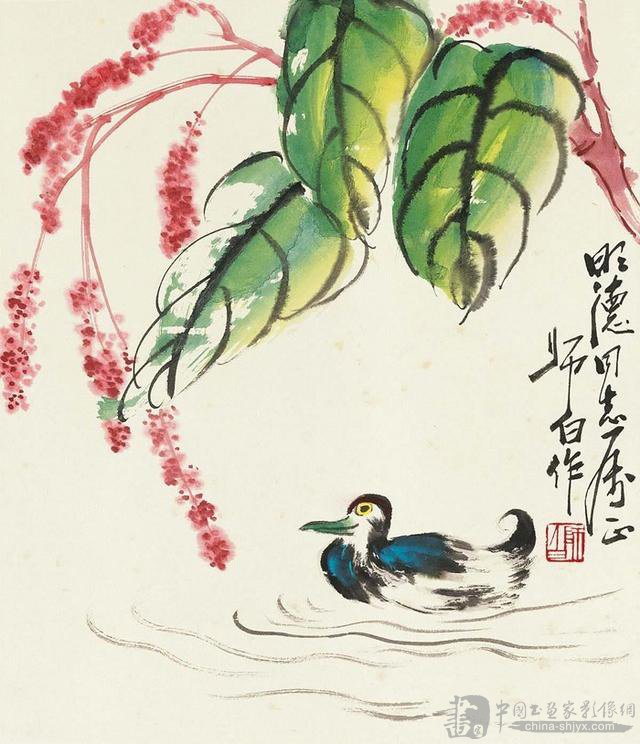 明德同志属正
师白作
中國书画家影像網
china-shjyx.com